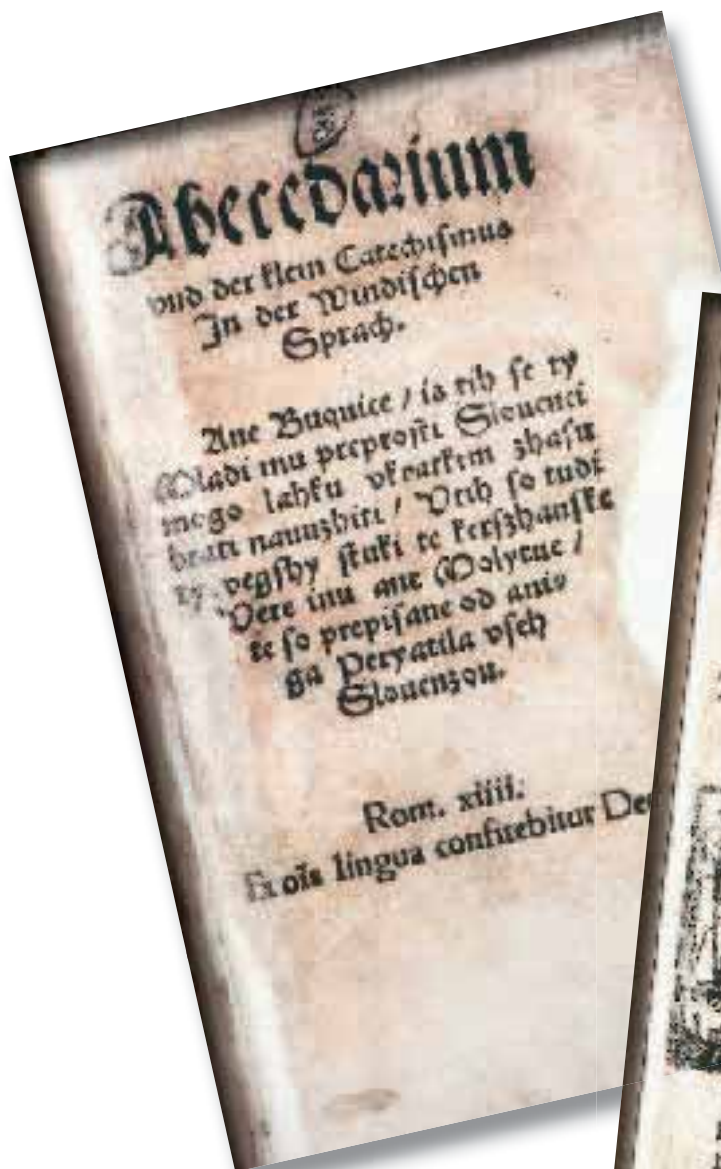 Abecedarium
vnd der klein Catechismus
In der Windischen
Sprach.
Ane Buquice / is tih se ty
Mladi inu preprosti Slouenci
mogo lahku vkratkim zhasu
brati nauuzhiti / Vtih so tudi
ty vegshy stuki te kerszhanske
Vere inu ane Molytue /
te so prepisane od aniga
Peryatila vseh
Slouenzou.
Rom. xiiii.
Et oîs lingua confitebitur Deo